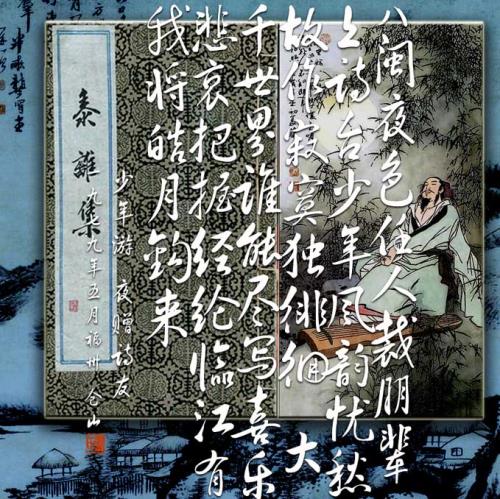 八闽夜色任人裁朋辈
上诗台少年风韵忧愁
故作寂寞独徘徊 大
千世界谁能尽写喜乐
悲哀把握经纶临江有
我将皓月钓来
少年游 夜赠诗友
年五月福州 仓山
黍離集